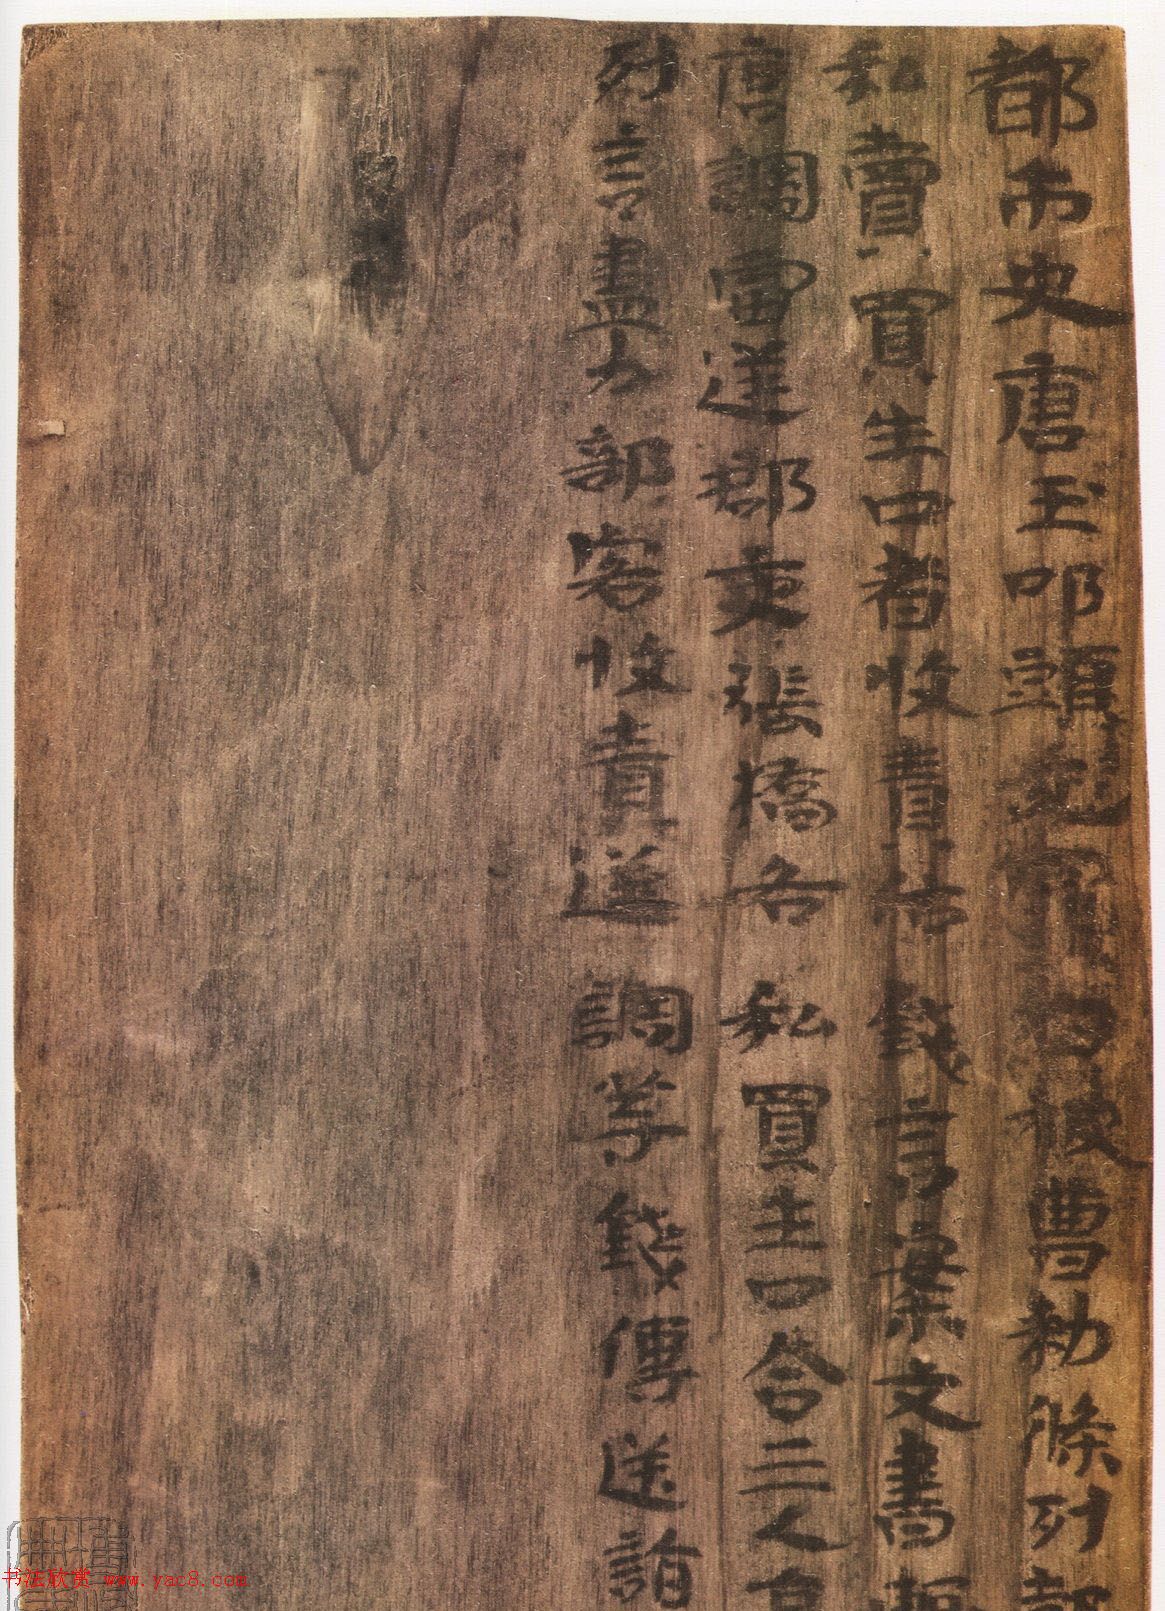 都市史唐玉叩頭死罪白被曹勑條列部
私賣買生口者收責估錢言案文書輒
唐調雷逆郡吏張橋各私買生口合三人合
列言盡力部客收責送調等錢傳送詣
书法欣赏 www.yac8.com